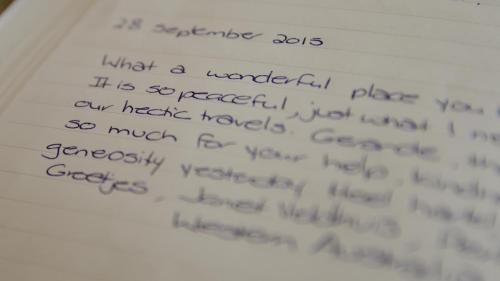 28 September 2015
What a wonderful place you
It is so peaceful, just what I
our hectic travels. Gerande,
so much for your help,
geneosity yesterday
Greetjes, Janet Veldhuis,
Western Australia